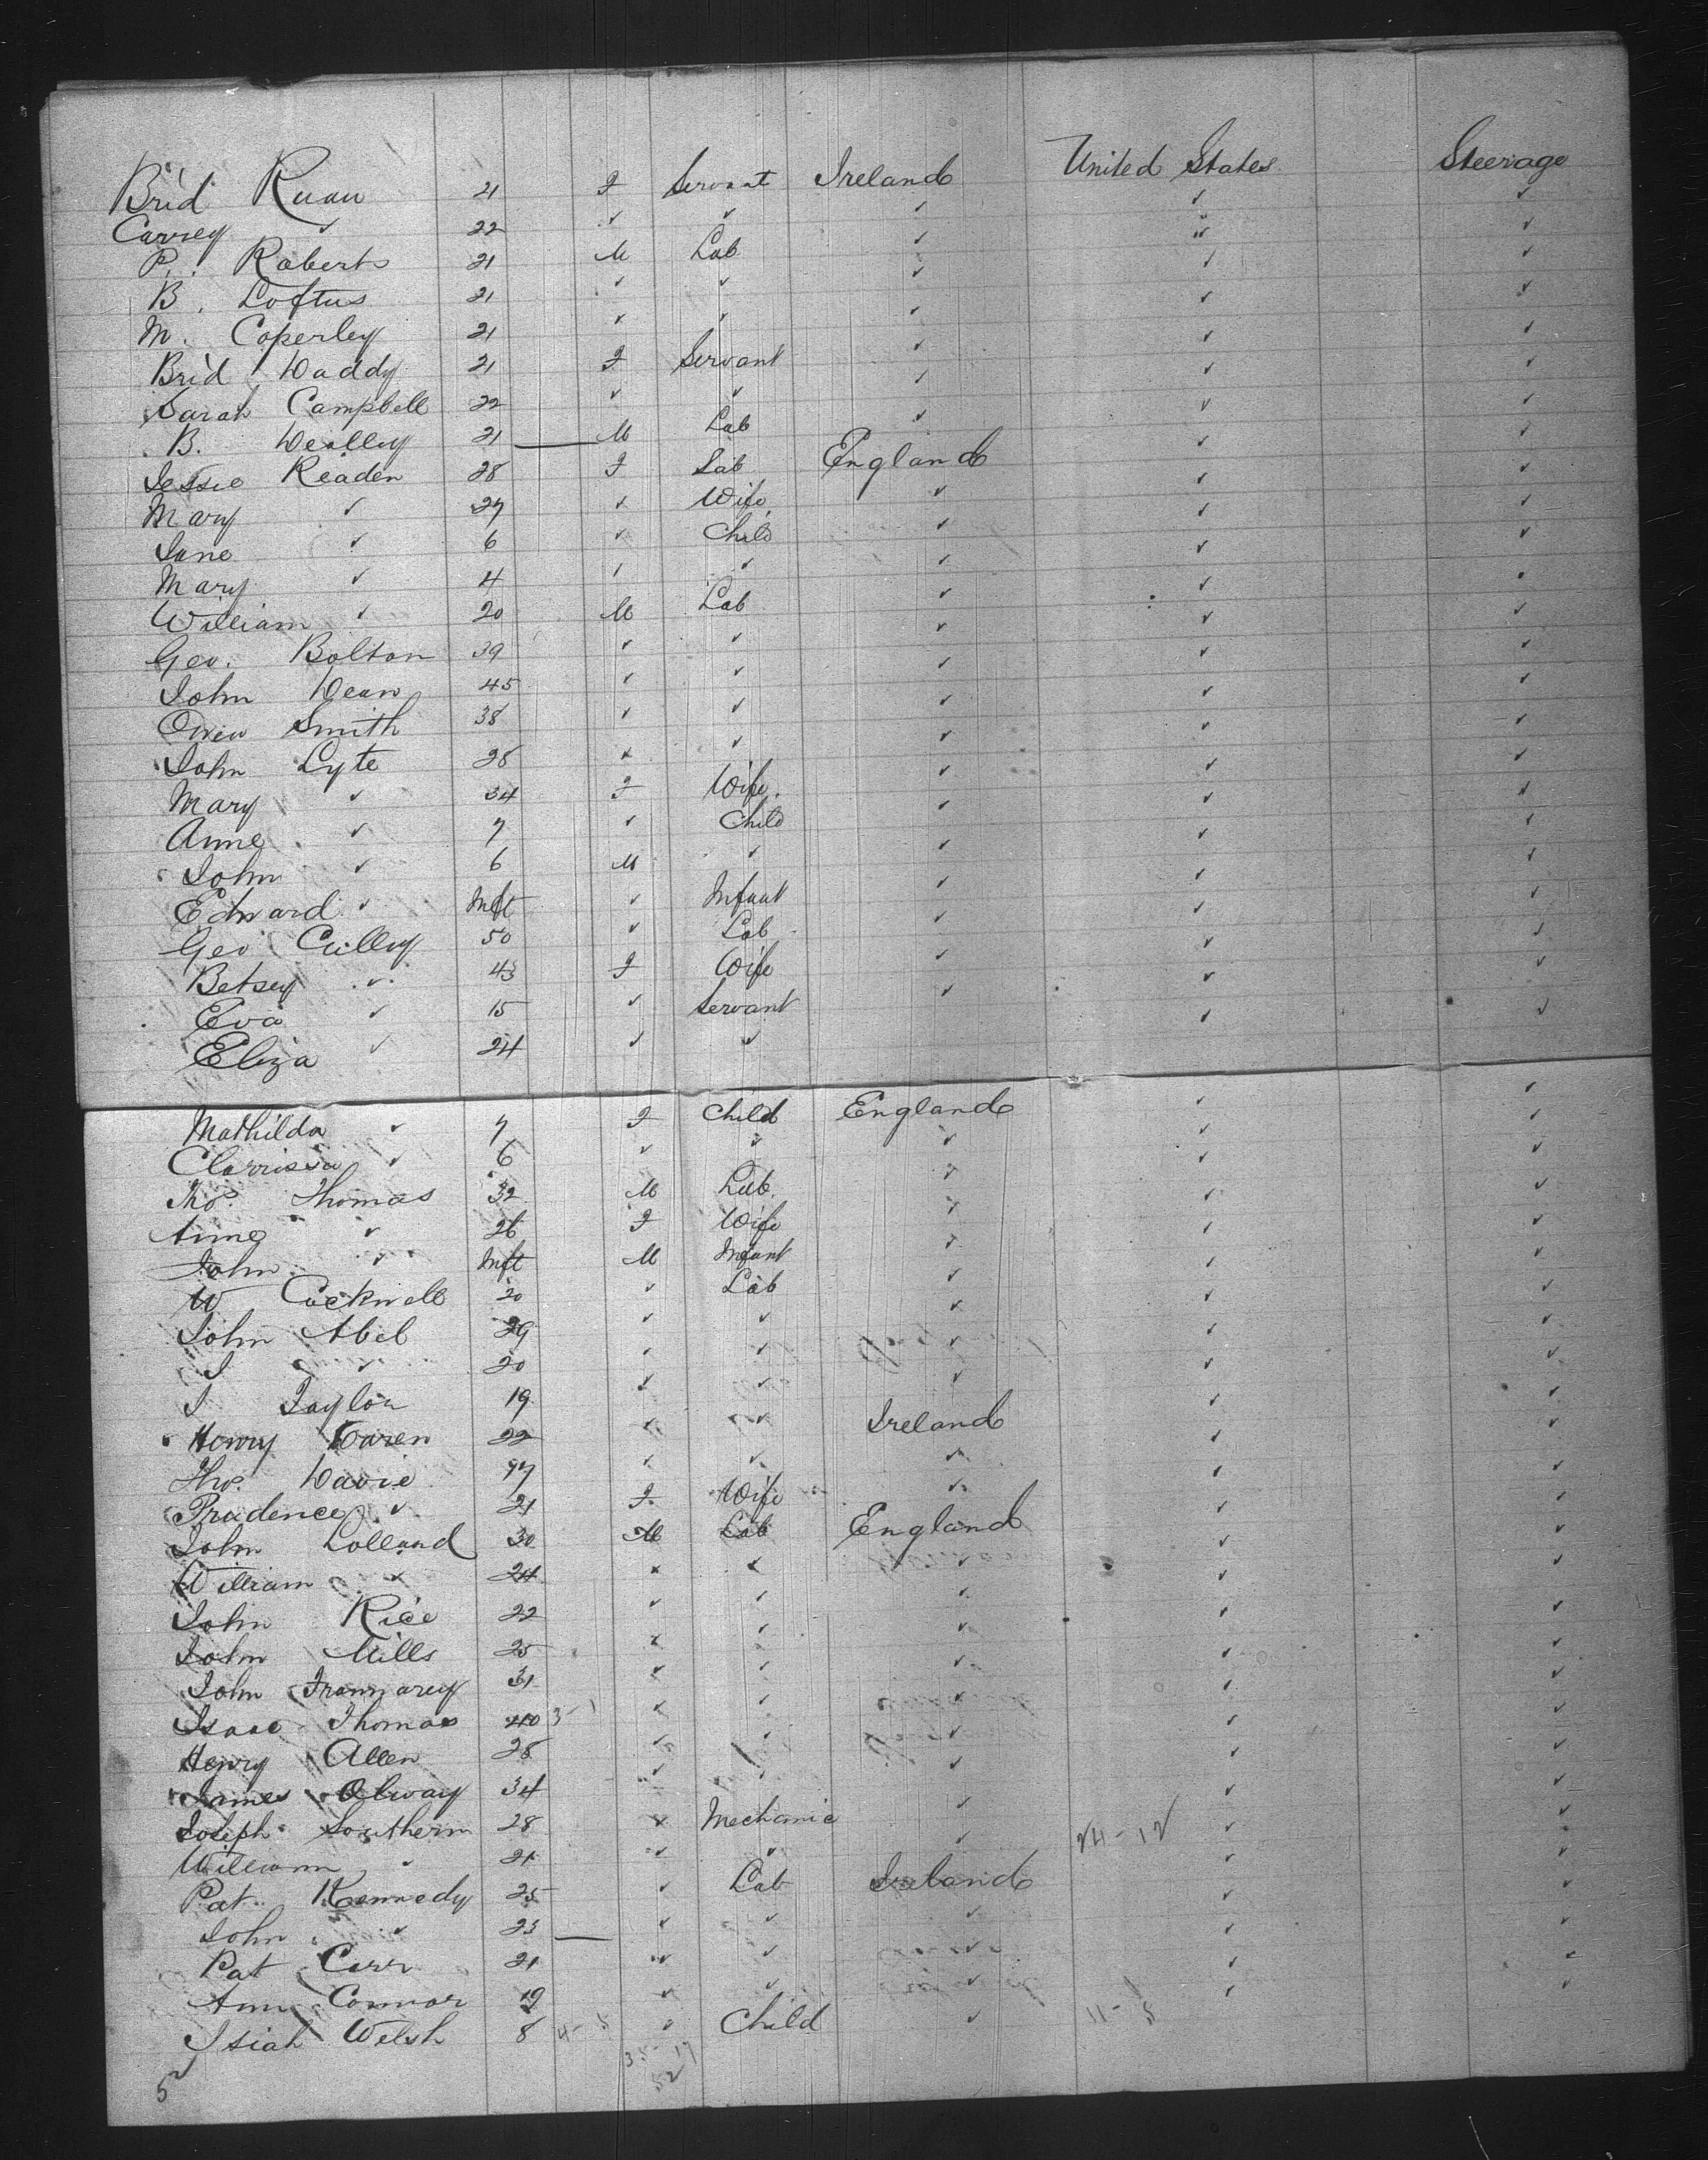 Brid Ruau 21 F Servant Ireland United States Steerage
Carrey ✓ 22 ✓ ✓ ✓ ✓ ✓
P. Roberts 21 M Lab ✓ " ✓
B. Loftus 21 ✓ ✓ ✓ ✓ ✓
M. Coperley 21 ✓ ✓ ✓ ✓ ✓
Brid Daddy 21 F Servant ✓ ✓ ✓
Sarah Campbell 22 ✓ ✓ ✓ ✓ ✓
B. Dealley 21 M Lab ✓ ✓ ✓
Jessie Readen 28 F Lab England ✓ ✓
Mary ✓ 27 ✓ Wife ✓ ✓ ✓
Jane ✓ 6 ✓ Child ✓ ✓ ✓
Mary ✓ 4 ✓ ✓ ✓ ✓ ✓
William ✓ 20 M Lab ✓ ✓ ✓
Geo. Bolton 39 ✓ ✓ ✓ ✓ ✓
John Dean 45 ✓ ✓ ✓ ✓ ✓
Owen Smith 38 ✓ ✓ ✓ ✓ ✓
John Lyte 28 ✓ ✓ ✓ ✓ ✓
Mary ✓ 34 F Wife ✓ ✓ ✓
Anne ✓ 7 ✓ Child ✓ ✓ ✓
John ✓ 6 M ✓ ✓ ✓ ✓
Edward ✓ Inft ✓ Infant ✓ ✓ ✓
Geo Culley 50 ✓ Lab ✓ ✓ ✓
Betsey ✓ 43 F Wife ✓ ✓ ✓
Eva ✓ 15 ✓ Servant ✓ ✓ ✓
Eliza ✓ 24 ✓ ✓ ✓ ✓
Mathilda ✓ 7 F Child England ✓ ✓
Clarrissa ✓ 6 ✓ ✓ ✓ ✓ ✓
Tho. Thomas 32 M Lab. ✓ ✓ ✓
Anne ✓ 26 F Wife ✓ ✓ ✓
John ✓ Inft M Infant ✓ ✓ ✓
W Cockwell 20 ✓ Lab ✓ ✓ ✓
John Abel 29 ✓ ✓ ✓ ✓ ✓
J ✓ 20 ✓ ✓ ✓ ✓ ✓
J Taylor 19 ✓ ✓ ✓ ✓ ✓
Henry Daren 22 ✓ ✓ Ireland ✓ ✓
Tho. Davie ✓ ✓ ✓ ✓ ✓
Prudence ✓ 21 F Wife ✓ ✓ ✓
John Lolland 30 M Lab England ✓ ✓
William ✓ 24 ✓ ✓ ✓ ✓ ✓
John Rice 22 ✓ ✓ ✓ ✓ ✓
John Mills 25 ✓ ✓ ✓ ✓ ✓
John 31 ✓ ✓ ✓ ✓ ✓
Isaac Thomas 40 3-1 ✓ ✓ ✓ ✓ ✓
Henry Allen 28 ✓ ✓ ✓ ✓ ✓
James Olway 34 ✓ ✓ ✓ ✓ ✓
Joseph Southern 28 ✓ Mechanic ✓ 24-12 ✓ ✓
William ✓ 21 ✓ ✓ ✓ ✓ ✓
Pat Kennedy 25 ✓ Lab Ireland ✓ ✓
John ✓ 23 ✓ ✓ ✓ ✓ ✓
Pat Carr 21 ✓ ✓ ✓ ✓ ✓
Ann Connor 19 ✓ ✓ ✓ ✓ ✓
Isiah Welsh 8 4-5 ✓ Child ✓ 11-8
35-17
52
52